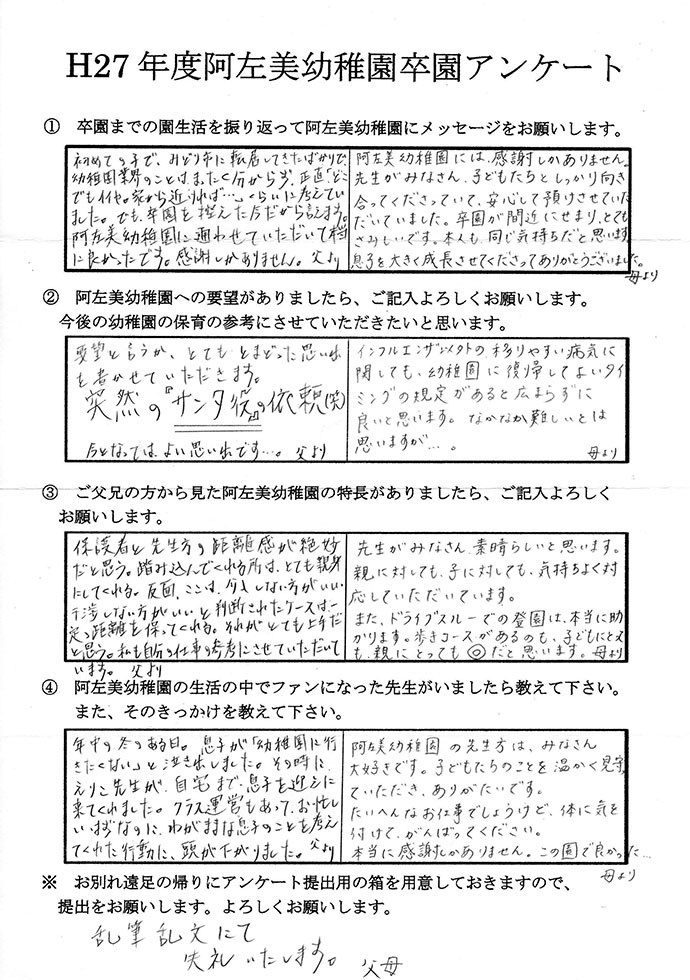 H27 年度阿左美幼稚園卒園アンケート
① 卒園までの園生活を振り返って阿左美幼稚園にメッセージをお願いします。
初めての子で、みどり市に転居してきたばかりで、
幼稚園業界のことは、まったく分からず、正直「どこ
でもイイや。家から近ければ…」くらいに考えてい
ました。でも、卒園を控えた今だから言えます。
阿左美幼稚園に通わせていただいて本当
に良かったです。感謝しかありません。父より
阿左美幼稚園には、感謝しかありません。
先生がみなさん、子どもたちとしっかり向き
合ってくださっていて、安心して預けさせていた
だいていました。卒園が間近にせまり、とても
さみしいです。本人も、同じ気持ちだと思います。
息子を大きく成長させてくださってありがとうございました。
母より
② 阿左美幼稚園への要望がありましたら、ご記入よろしくお願いします。
今後の幼稚園の保育の参考にさせていただきたいと思います。
要望と言うか、とてもとまどった思い出
を書かせていただきます。
突然の『サンタ役』の依頼(笑)
今となっては、よい思い出です…。父より
インフルエンザ以外の移りやすい病気に
関しても、幼稚園に復帰してよいタイ
ミングの規定があると広まらずに
良いと思います。なかなか難しいとは
思いますが…。
母より
③ ご父兄の方から見た阿左美幼稚園の特長がありましたら、ご記入よろしく
お願いします。
保護者と先生方の距離感が絶妙
だと思う。踏み込んでくれる所は、とても親身
にしてくれる。反面、ここは、介入しない方がいい
干渉しない方がいいと判断されたケースは、一
定の距離を保ってくれる。それがとても上手だ
と思う。私も自分の仕事の参考にさせていただいて
います。父より
先生がみなさん、素晴らしいと思います。
親に対しても、子に対しても、気持ちよく対
応していただいています。
また、ドライブスルーでの登園は、本当に助
かります。歩きコースがあるのも、子どもにとって
も、親にとっても◎だと思います。母より
④ 阿左美幼稚園の生活の中でファンになった先生がいましたら教えて下さい。
また、そのきっかけを教えて下さい。
年中の冬のある日。息子が「幼稚園に行
きたくない」と泣き出しました。その時に、
えりこ先生が、自宅まで息子を迎えに
来てくれました。クラス運営もあって、お忙し
いはずなのに、わがままな息子のことを考え
てくれた行動に、頭が下がりました。父より
阿左美幼稚園の先生方は、みなさん
大好きです。子どもたちのことを温かく見守っ
ていただき、ありがたいです。
たいへんなお仕事でしょうけど、体に気を
付けて、がんばってください。
本当に感謝しかありません。この園で良かった…
母より
※ お別れ遠足の帰りにアンケート提出用の箱を用意しておきますので、
提出をお願いします。よろしくお願いします。
乱筆乱文にて
失礼いたします。 父母